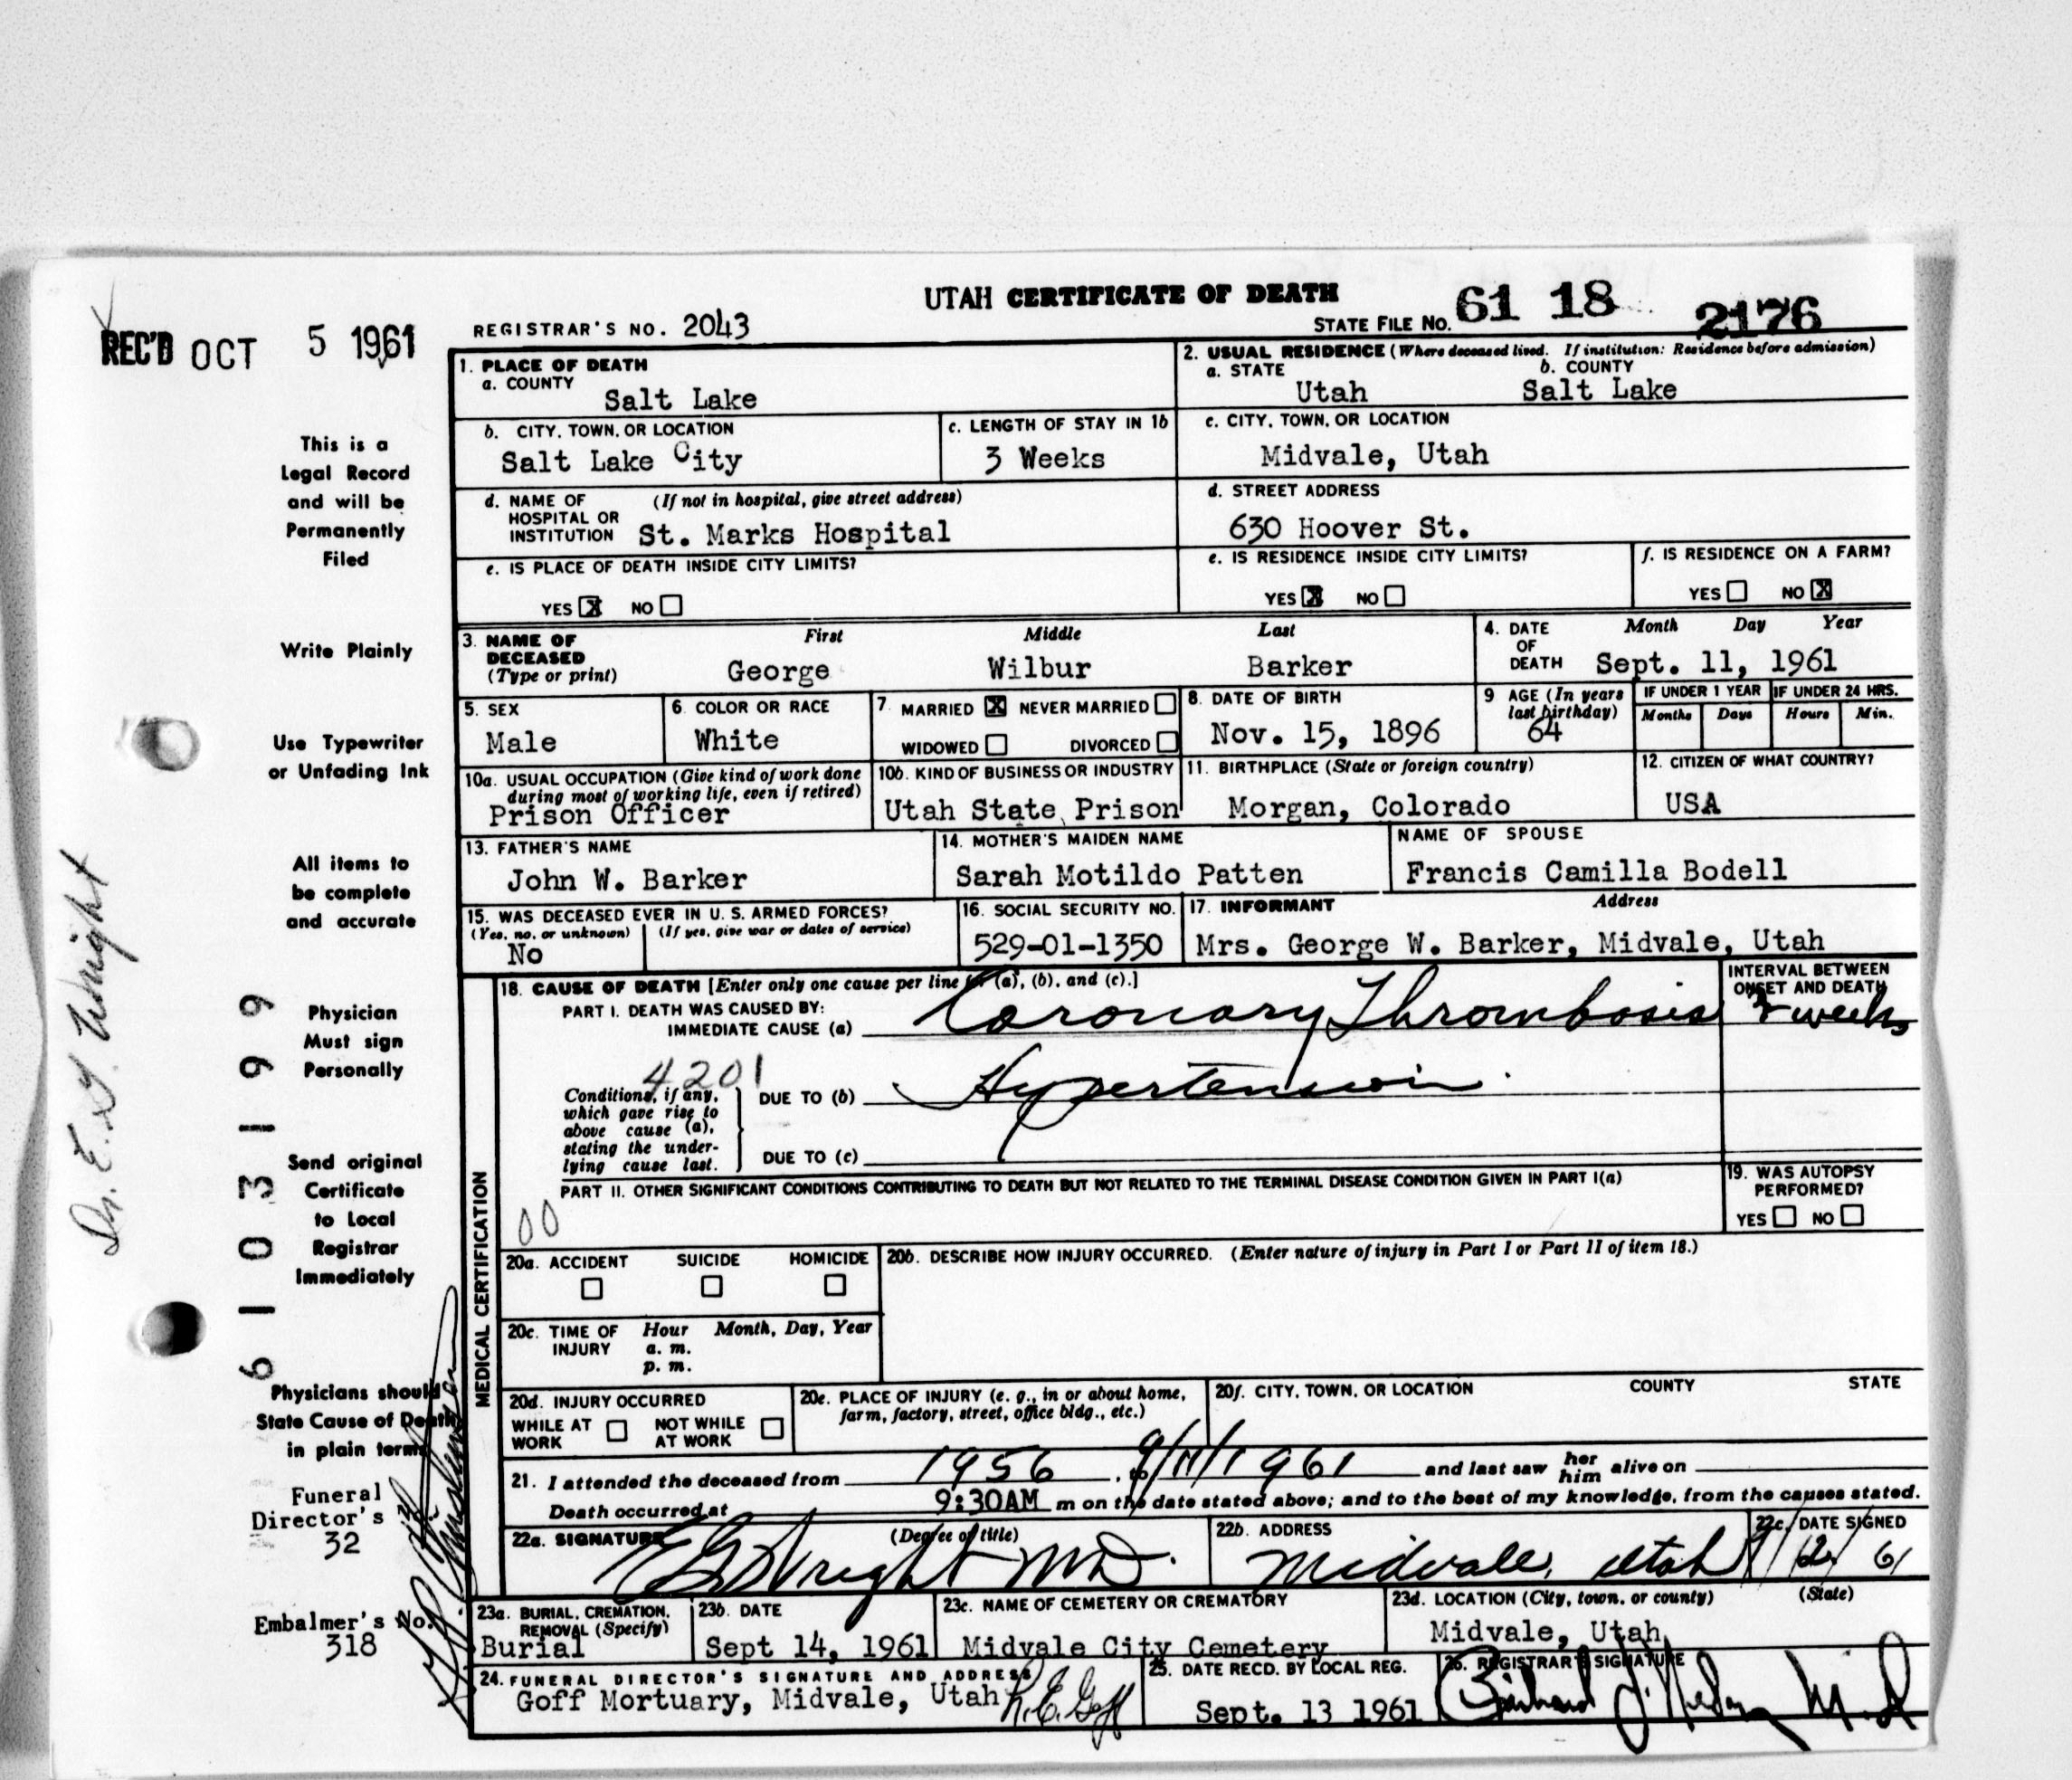 UTAH CERTIFICATE OF DEATH
REC'D OCT 5 1961
REGISTRAR'S NO. 2043
STATE FILE NO. 61 18 2176
This is a
Legal Record
and will be
Permanently
Filed
Write Plainly
Use Typewriter
or Unfading Ink
All items to
be complete
and accurate
Physician
Must sign
Personally
Send original
Certificate
to Local
Registrar
Immediately
Physicians should
State Cause of Death
in plain terms
Funeral
Director's
32
Embalmer's No.
318
Dr. E. G. Wright
6103199
1. PLACE OF DEATH
a. COUNTY
Salt Lake
2. USUAL RESIDENCE (Where deceased lived. If institution: Residence before admission)
a. STATE b. COUNTY
Utah Salt Lake
b. CITY, TOWN, OR LOCATION
Salt Lake City
c. LENGTH OF STAY IN 1b
3 Weeks
c. CITY, TOWN, OR LOCATION
Midvale, Utah
d. NAME OF (If not in hospital, give street address)
HOSPITAL OR
INSTITUTION St. Marks Hospital
d. STREET ADDRESS
630 Hoover St.
e. IS PLACE OF DEATH INSIDE CITY LIMITS?
YES X NO
e. IS RESIDENCE INSIDE CITY LIMITS?
YES X NO
f. IS RESIDENCE ON A FARM?
YES NO X
3. NAME OF First Middle Last
DECEASED
(Type or print) George Wilbur Barker
4. DATE Month Day Year
OF
DEATH Sept. 11, 1961
5. SEX
Male
6. COLOR OR RACE
White
7. MARRIED X NEVER MARRIED
WIDOWED DIVORCED
8. DATE OF BIRTH
Nov. 15, 1896
9 AGE (In years
last birthday)
64
IF UNDER 1 YEAR IF UNDER 24 HRS.
Months Days Hours Min.
10a. USUAL OCCUPATION (Give kind of work done
during most of working life, even if retired)
Prison Officer
10b. KIND OF BUSINESS OR INDUSTRY
Utah State Prison
11. BIRTHPLACE (State or foreign country)
Morgan, Colorado
12. CITIZEN OF WHAT COUNTRY?
USA
13. FATHER'S NAME
John W. Barker
14. MOTHER'S MAIDEN NAME
Sarah Motildo Patten
NAME OF SPOUSE
Francis Camilla Bodell
15. WAS DECEASED EVER IN U. S. ARMED FORCES?
(Yes, no, or unknown) (If yes, give war or dates of service)
No
16. SOCIAL SECURITY NO.
529-01-1350
17. INFORMANT Address
Mrs. George W. Barker, Midvale, Utah
MEDICAL CERTIFICATION
18. CAUSE OF DEATH [Enter only one cause per line for (a), (b), and (c).]
PART I. DEATH WAS CAUSED BY:
IMMEDIATE CAUSE (a) Coronary Thrombosis
INTERVAL BETWEEN
ONSET AND DEATH
weeks
4201
Conditions, if any,
which gave rise to
above cause (a),
stating the under-
lying cause last.
DUE TO (b) Hypertension
DUE TO (c)
PART II. OTHER SIGNIFICANT CONDITIONS CONTRIBUTING TO DEATH BUT NOT RELATED TO THE TERMINAL DISEASE CONDITION GIVEN IN PART I(a)
00
19. WAS AUTOPSY
PERFORMED?
YES NO
20a. ACCIDENT SUICIDE HOMICIDE
20b. DESCRIBE HOW INJURY OCCURRED. (Enter nature of injury in Part I or Part II of item 18.)
20c. TIME OF Hour Month, Day, Year
INJURY a. m.
p. m.
20d. INJURY OCCURRED
WHILE AT NOT WHILE
WORK AT WORK
20e. PLACE OF INJURY (e. g., in or about home,
farm, factory, street, office bldg., etc.)
20f. CITY, TOWN, OR LOCATION COUNTY STATE
21. I attended the deceased from 1956, to 9/11/1961 and last saw her him alive on
Death occurred at 9:30AM m on the date stated above; and to the best of my knowledge, from the causes stated.
22a. SIGNATURE (Degree or title)
E G Wright MD.
22b. ADDRESS
Midvale, Utah
22c. DATE SIGNED
9/12/61
23a. BURIAL, CREMATION,
REMOVAL (Specify)
Burial
23b. DATE
Sept 14, 1961
23c. NAME OF CEMETERY OR CREMATORY
Midvale City Cemetery
23d. LOCATION (City, town, or county) (State)
Midvale, Utah
24. FUNERAL DIRECTOR'S SIGNATURE AND ADDRESS
Goff Mortuary, Midvale, Utah R. E. Goff
25. DATE RECD. BY LOCAL REG.
Sept. 13 1961
26. REGISTRAR'S SIGNATURE